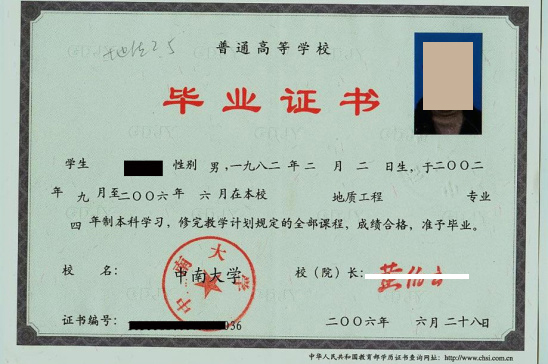 普通高等学校
毕业证书
学生 性别 男,一九八二 年 二 月 二 日生,于二〇〇二
年 九 月至二〇〇六年 六 月在本校 地质工程 专业
四 年制本科学习,修完教学计划规定的全部课程,成绩合格,准予毕业。
校 名: 中南大学 校(院)长:
中南大学
证书编号: 036 二〇〇六年 六月二十八日
中华人民共和国教育部学历证书查询网址:http://www.chsi.com.cn